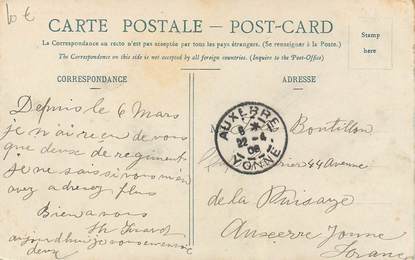 10 €
CARTE POSTALE – POST-CARD
La Correspondance au recto n'est pas acceptée par tous les pays étrangers. (Se renseigner à la Poste.)
The Correspondence on this side is not accepted by all foreign countries. (Inquire to the Post-Office)
Stamp
here
CORRESPONDANCE
ADRESSE
AUXERRE
22 -4
08
YONNE
Depuis le 6 Mars
je n'ai rien de vous
que deux de regiment
je ne sais si vous m'en
avez adressez plus
Bien a vous
aujourdhui je vous envoie
deux
Boutillon
44 Avenue
de la Puisaye
Auxerre Yonne
France